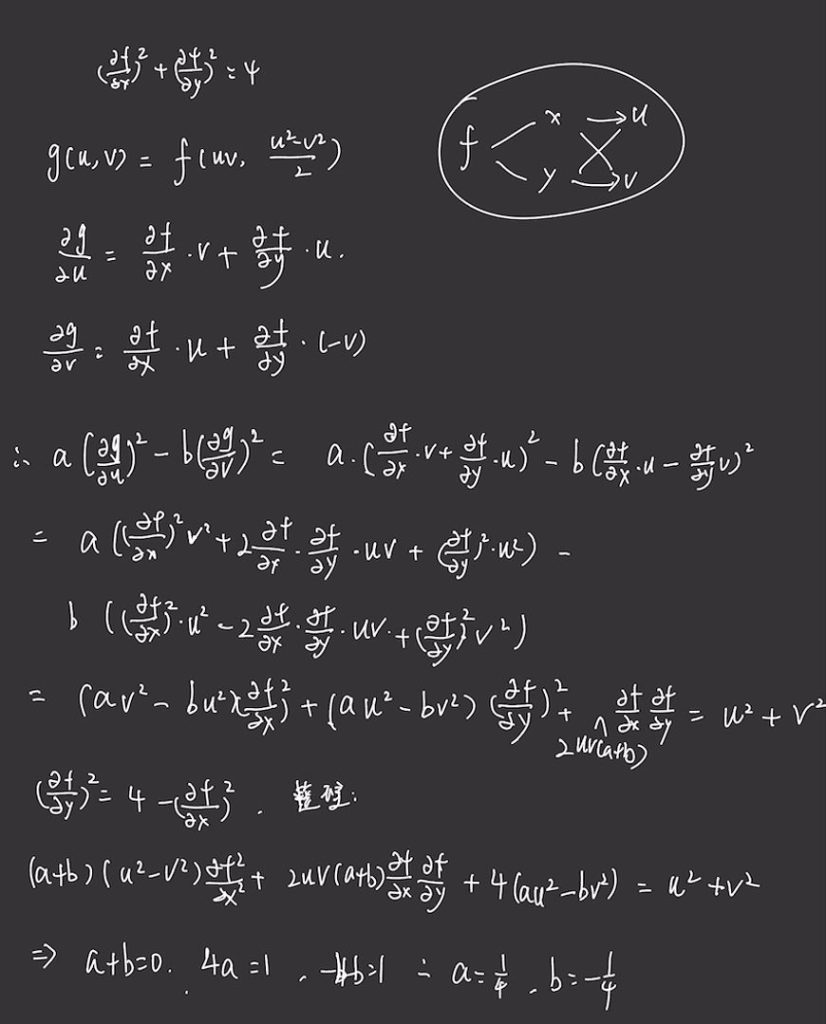 (∂f/∂x)² + (∂f/∂y)² = 4
g(u,v) = f(uv, (u²-v²)/2)
f x → u
y → v
∂g/∂u = ∂f/∂x · v + ∂f/∂y · u.
∂g/∂v = ∂f/∂x · u + ∂f/∂y · (-v)
∴ a(∂g/∂u)² - b(∂g/∂v)² = a·(∂f/∂x · v + ∂f/∂y · u)² - b(∂f/∂x · u - ∂f/∂y v)²
= a((∂f/∂x)² v² + 2 ∂f/∂x · ∂f/∂y · uv + (∂f/∂y)² · u²) -
b((∂f/∂x)² · u² - 2 ∂f/∂x · ∂f/∂y · uv + (∂f/∂y)² v²)
= (av² - bu²)(∂f/∂x)² + (au² - bv²)(∂f/∂y)² + 2uv(a+b) ∂f/∂x ∂f/∂y = u² + v²
(∂f/∂y)² = 4 - (∂f/∂x)². 整理:
(a+b)(u²-v²) ∂f²/∂x² + 2uv(a+b) ∂f/∂x ∂f/∂y + 4(au²-bv²) = u²+v²
⇒ a+b=0. 4a=1, -4b=1 ∴ a=1/4, b=-1/4